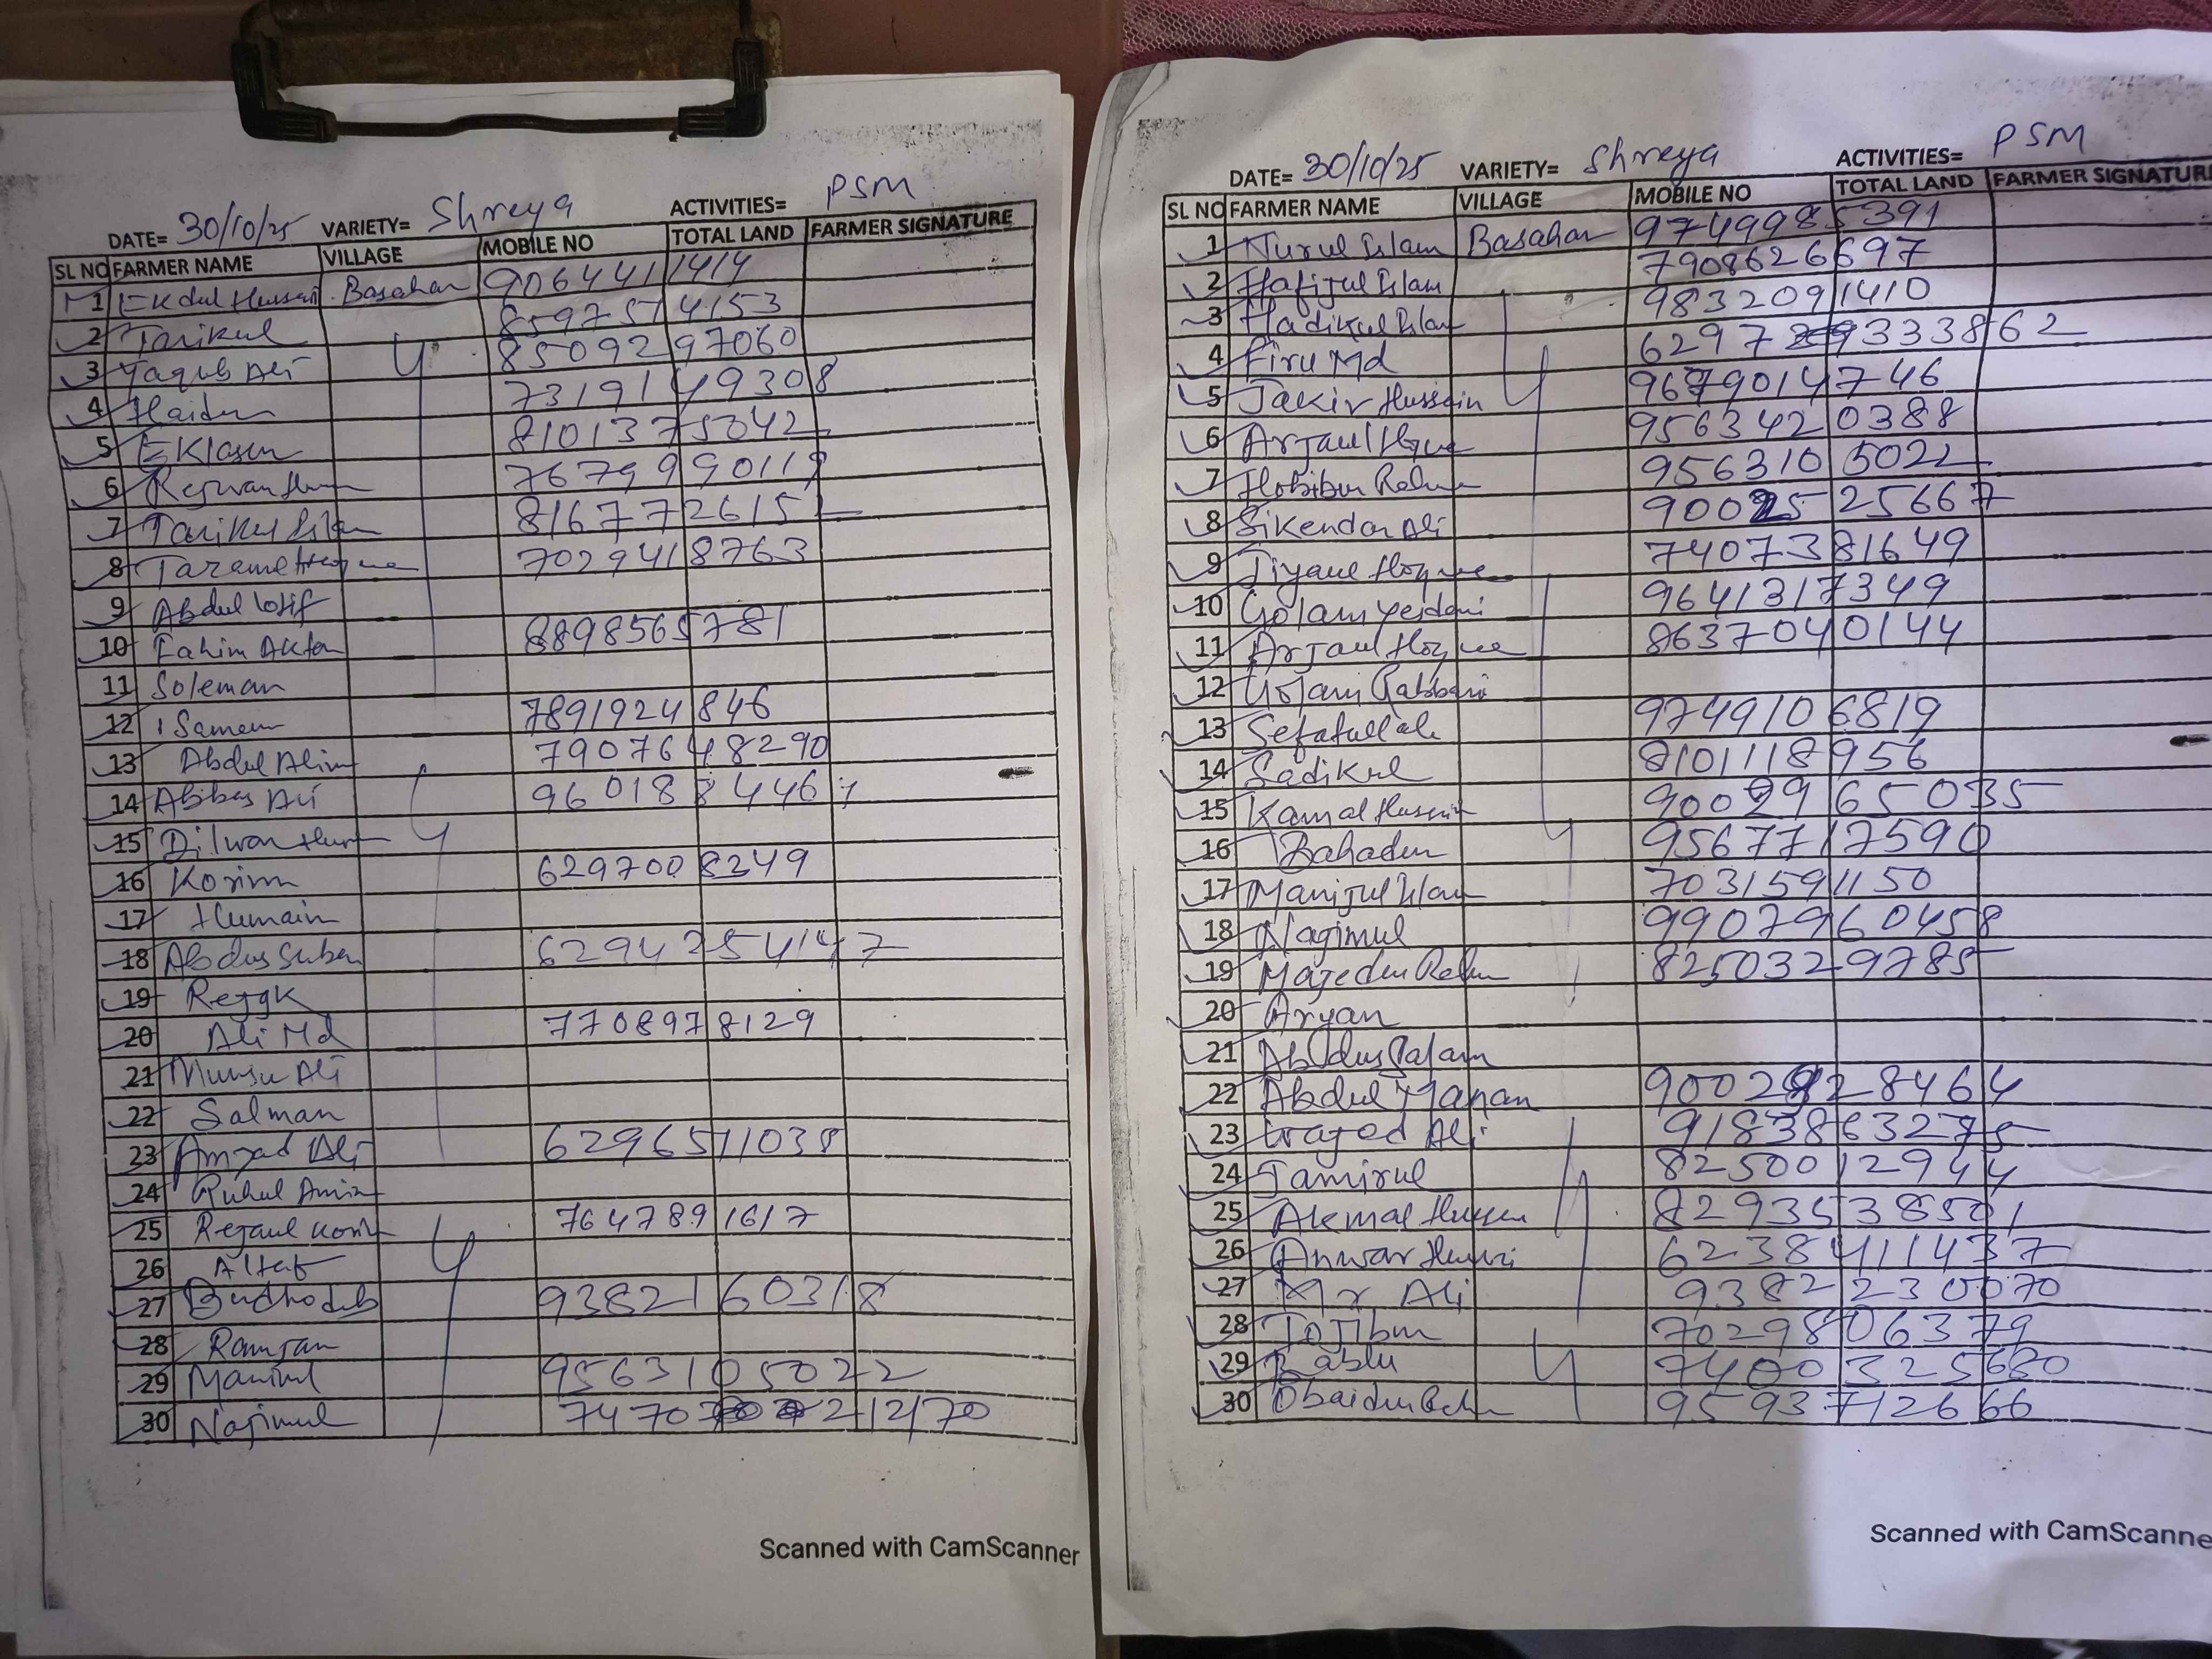 DATE= 30/10/25 VARIETY= Shreya ACTIVITIES= PSM
SL NO FARMER NAME VILLAGE MOBILE NO TOTAL LAND FARMER SIGNATURE
1 Ekdul Hussain Basahar 9064411414
2 Tarikul 8597514153
3 Yaqub Ali 8509297060
4 Haidur 7319149308
5 Eklasur 8101375042
6 Rejwan 7679990119
7 Tarikul Islam 8167726152
8 Hoque 7029418763
9 Abdul Lotif
10 Fahim Aktar 8898565781
11 Soleman
12 Samaun 7891924846
13 Abdul Alim 7907648290
14 Abbas Ali
15 Dilwar
16 Korim 6297008249
17 Humain
18 Abdus Suban 6294254147
19 Rejjak
20 Ali Md 7708978129
21 Munsu Ali
22 Salman
23 Amjad Ali 6296511038
24 Ruhul Amin
25 Rejaul Korim 7647891617
26 Altab
27 9382160318
28 Ramjan
29 Manirul 9563105022
30 Najimul
Scanned with CamScanner
DATE= 30/10/25 VARIETY= Shreya ACTIVITIES= PSM
SL NO FARMER NAME VILLAGE MOBILE NO TOTAL LAND FARMER SIGNATURE
1 Nurul Islam Basahar 9749985391
2 Hafijul Islam 7908626697
3 Hadikul Islam 9832091410
4 Firu Md
5 Jakir Hussain
6 Arjaul Hoque 9563420388
7 Hobibur Rahman 9563105022
8 Sikendar Ali
9 Jiyaul Hoque 7407381649
10 Golam Yejdani 9641317349
11 Arjaul Hoque 8637040144
12 Golam Rabbani
13 Sefatullah 9749106819
14 Sadikul 8101118956
15 Kamal Hussain
16 Bahadur 9567717590
17 Manijul Islam 7031591150
18 Najimul 9907960458
19 Majedur Rahman 8250329785
20 Aryan
21 Abdus Salam
22 Abdul Manan
23 Wajed Ali
24 Jamirul 8250012944
25 Akmal Hussain 8293538501
26 Anwar 6238411437
27 Mr Ali 9382230070
28 Jojibur 7029806379
29 Bablu 7400325680
30 Obaidur 9593712666
Scanned with CamScanne